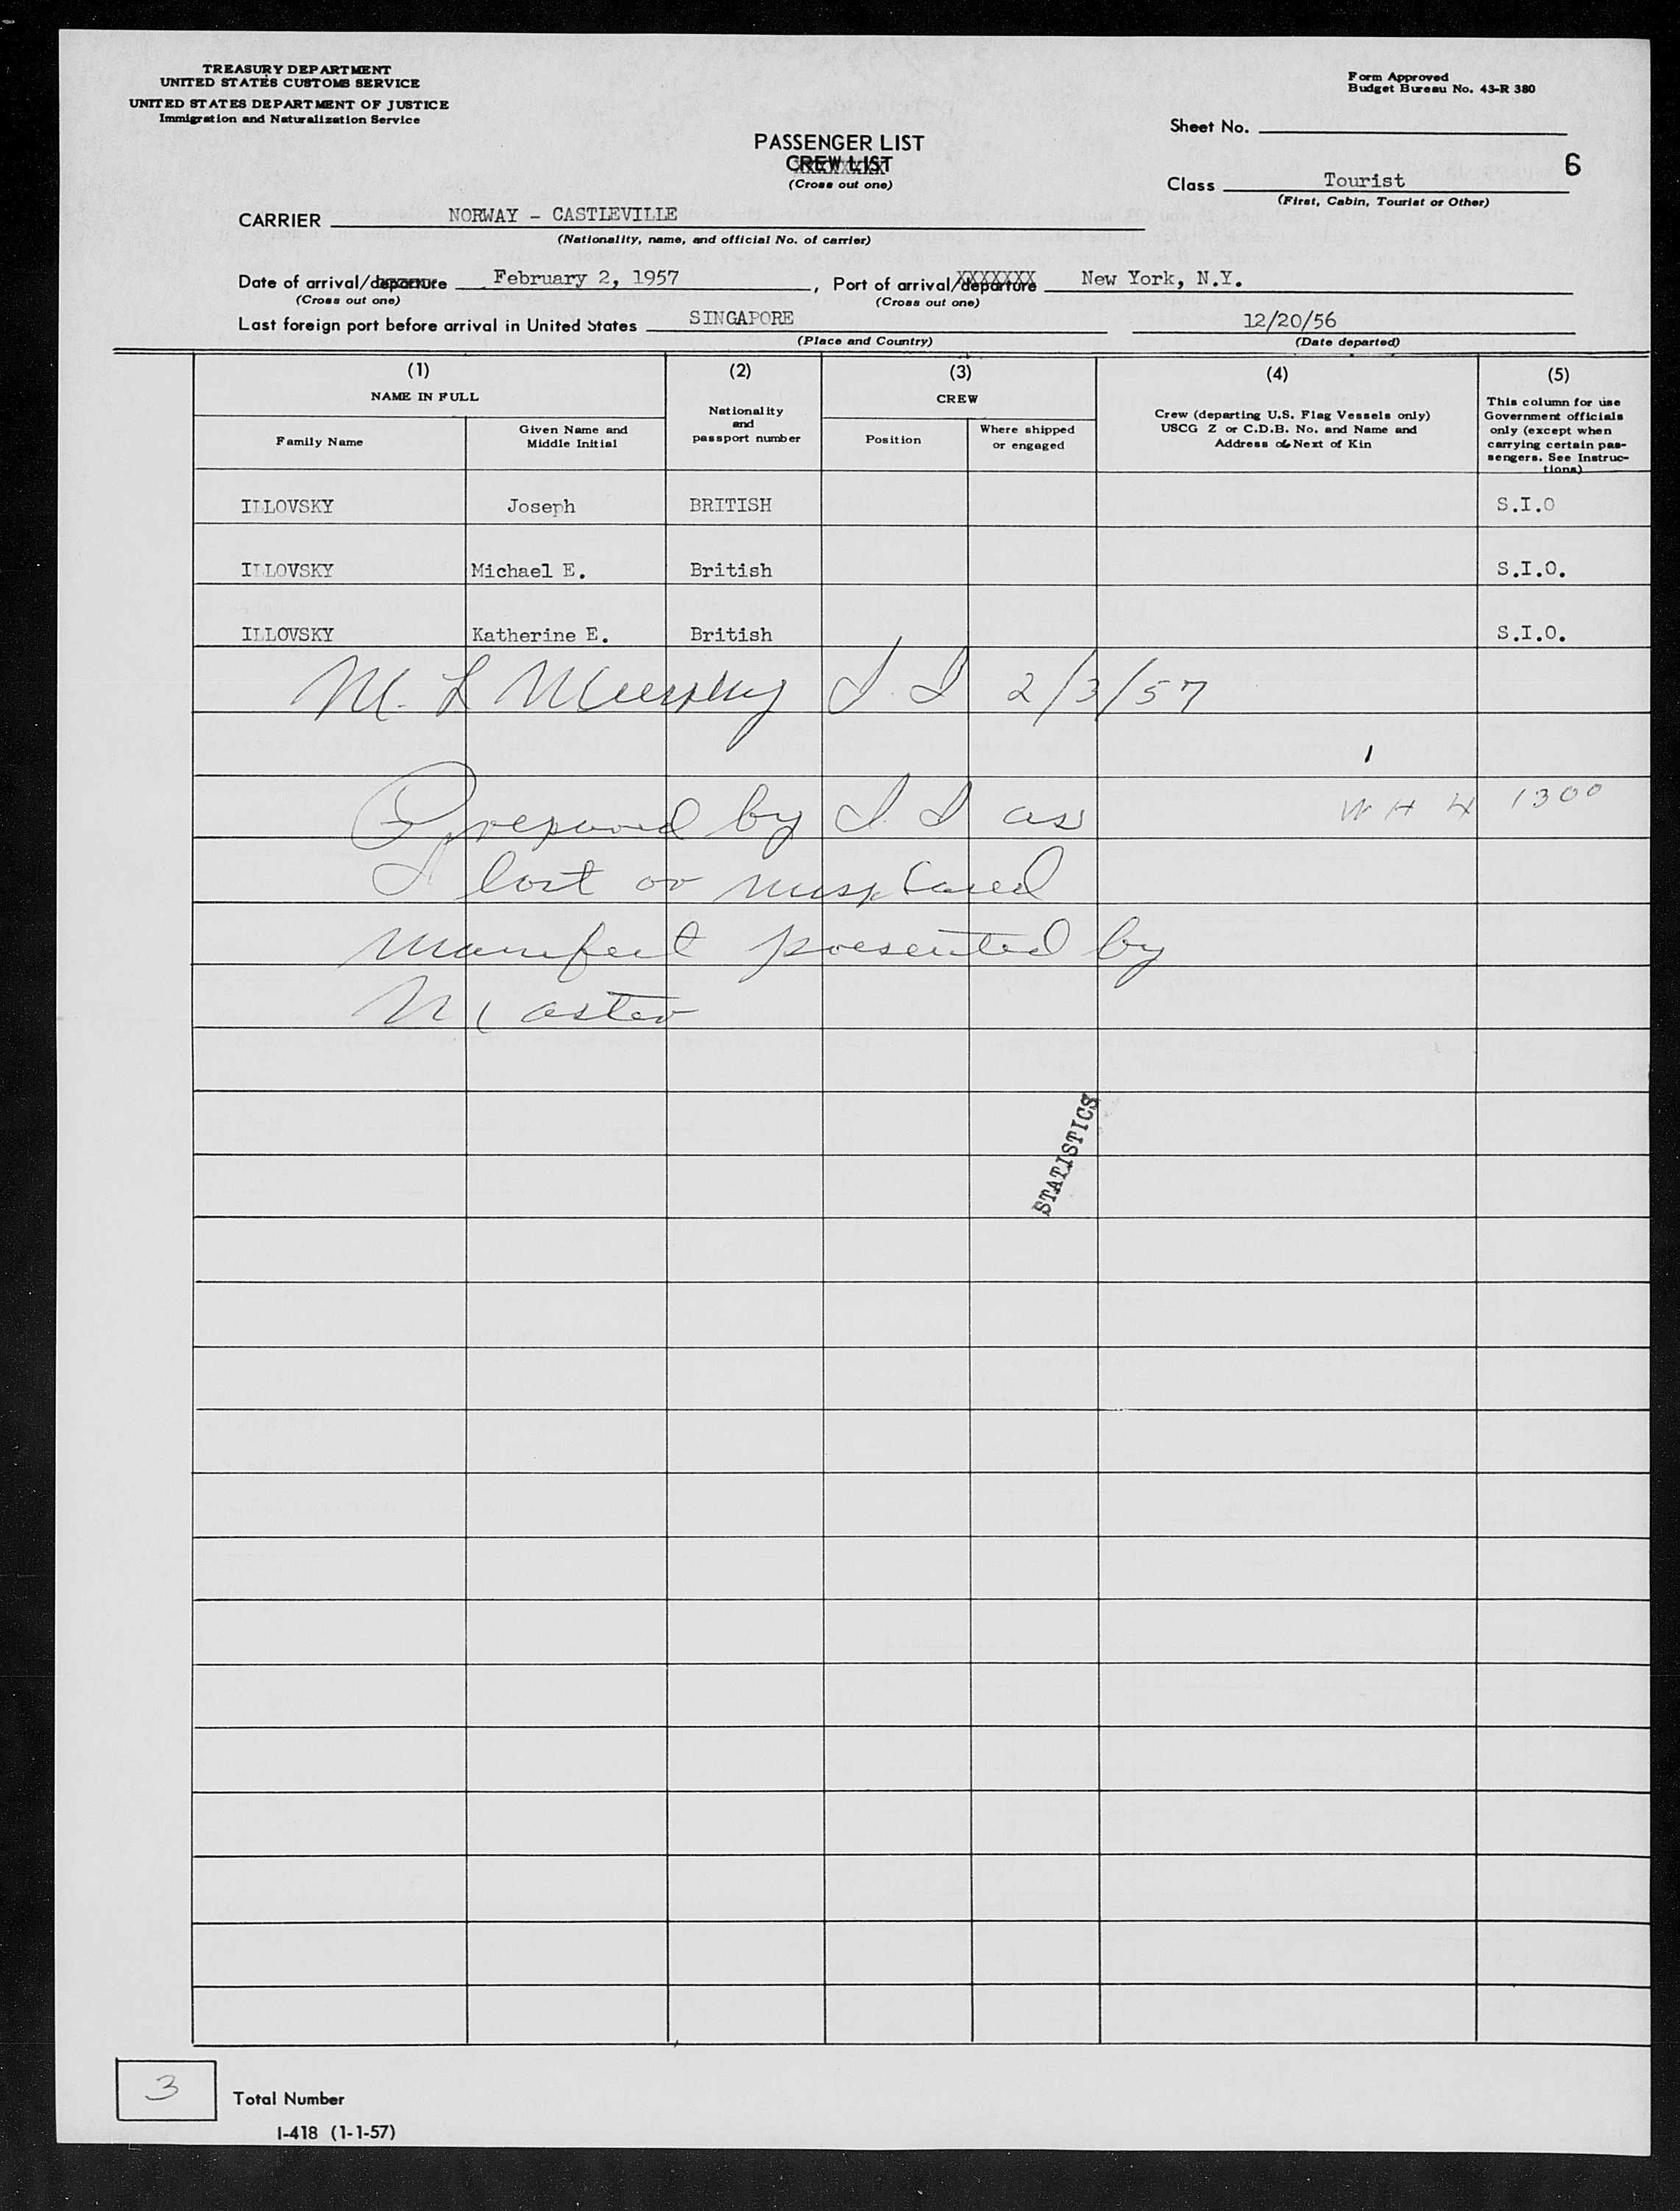 TREASURY DEPARTMENT
UNITED STATES CUSTOMS SERVICE
UNITED STATES DEPARTMENT OF JUSTICE
Immigration and Naturalization Service
Form Approved
Budget Bureau No. 43-R 380
Sheet No.
6
PASSENGER LIST
CREW LIST
(Cross out one)
Class Tourist
(First, Cabin, Tourist or Other)
CARRIER NORWAY - CASTLEVILLE
(Nationality, name, and official No. of carrier)
Date of arrival/departure February 2, 1957, Port of arrival/departure New York, N.Y.
(Cross out one) (Cross out one)
Last foreign port before arrival in United States SINGAPORE 12/20/56
(Place and Country) (Date departed)
(1) (2) (3) (4) (5)
NAME IN FULL
Family Name
Given Name and
Middle Initial
Nationality
and
passport number
CREW
Position
Where shipped
or engaged
Crew (departing U.S. Flag Vessels only)
USCG Z or C.D.B. No. and Name and
Address of Next of Kin
This column for use
Government officials
only (except when
carrying certain pas-
sengers. See Instruc-
tions)
ILLOVSKY Joseph BRITISH S.I.O
ILLOVSKY Michael E. British S.I.O.
ILLOVSKY Katherine E. British S.I.O.
M. L Murphy I. I 2/3/57
Prepared by I. I as
W H 4 1300
I lost or misplaced
manifest presented by
Master
STATISTICS
3
Total Number
I-418 (1-1-57)